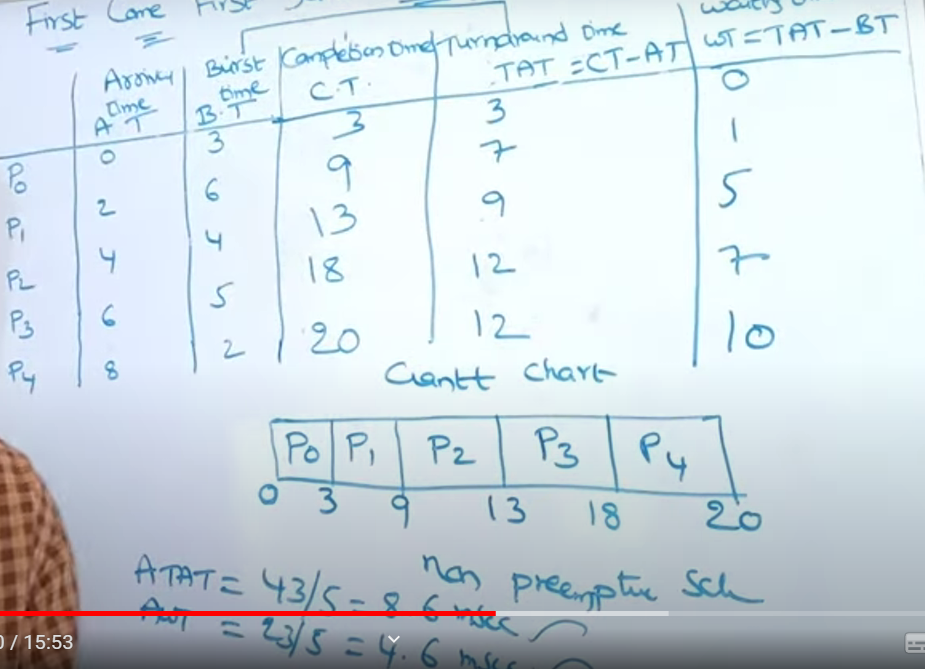 First Come First
Arrival time A T | Burst time B.T | Completion time C.T. | Turnaround time TAT = CT-AT | WT = TAT-BT
P0 0 3 3 3 0
P1 2 6 9 7 1
P2 4 4 13 9 5
P3 6 5 18 12 7
P4 8 2 20 12 10
Gantt Chart
P0 P1 P2 P3 P4
0 3 9 13 18 20
Non preemptive Sch
ATAT = 43/5 = 8.6 msec
AWT = 23/5 = 4.6 msec
/ 15:53